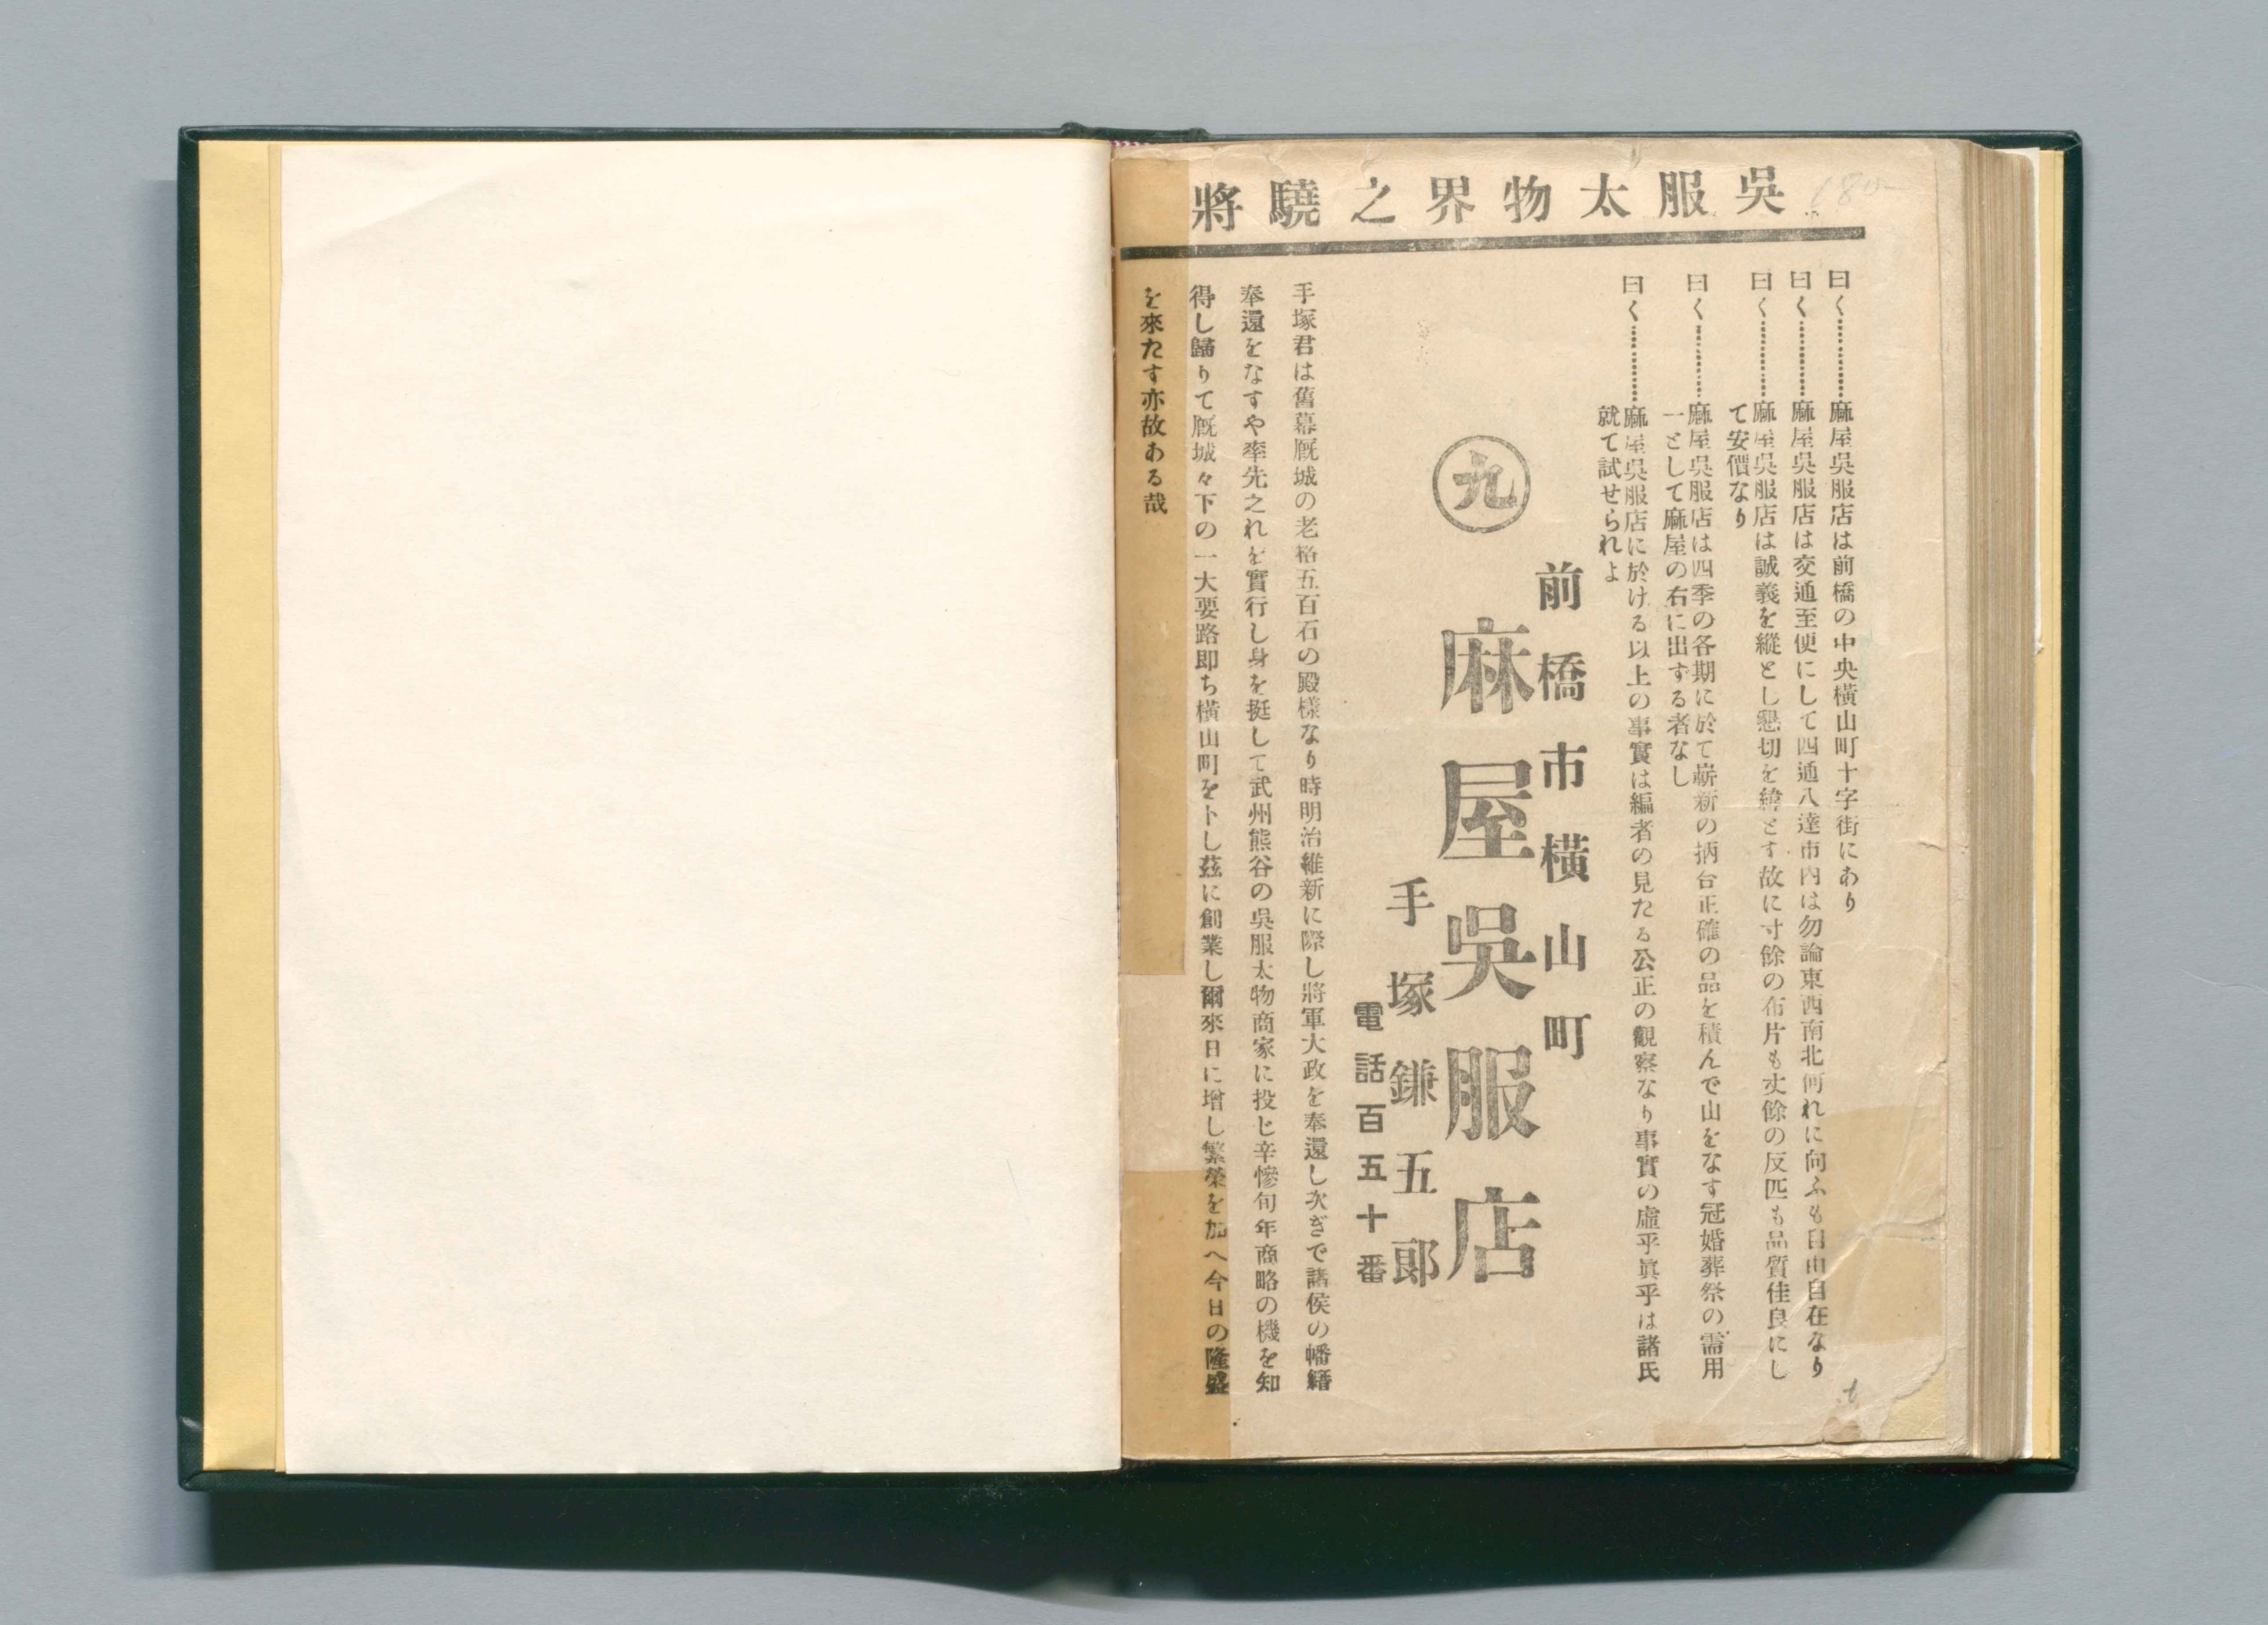 吳服太物界之驍將
曰く…………麻屋吳服店は前橋の中央橫山町十字街にあり
曰く…………麻屋吳服店は交通至便にして四通八達市內は勿論東西南北何れに向ふも自由自在なり
曰く…………麻屋吳服店は誠義を縱とし懇切を緯とす故に寸餘の布片も丈餘の反匹も品質佳良にし
て安價なり
曰く…………麻屋吳服店は四季の各期に於て嶄新の柄合正確の品を積んで山をなす冠婚葬祭の需用
一として麻屋の右に出ずる者なし
曰く…………麻屋吳服店に於ける以上の事實は編者の見たる公正の觀察なり事實の虛乎眞乎は諸氏
就て試せられよ
前橋市橫山町
九
麻屋吳服店
手塚鎌五郞
電話百五十番
手塚君は舊幕厩城の老格五百石の殿樣なり時明治維新に際し將軍大政を奉還し次ぎで諸侯の幡籍
奉還をなすや率先之れを實行し身を挺して武州熊谷の吳服太物商家に投じ辛慘旬年商略の機を知
得し歸りて厩城々下の一大要路卽ち橫山町をトし茲に創業し爾來日に增し繁榮を加へ今日の隆盛
を來たす亦故ある哉